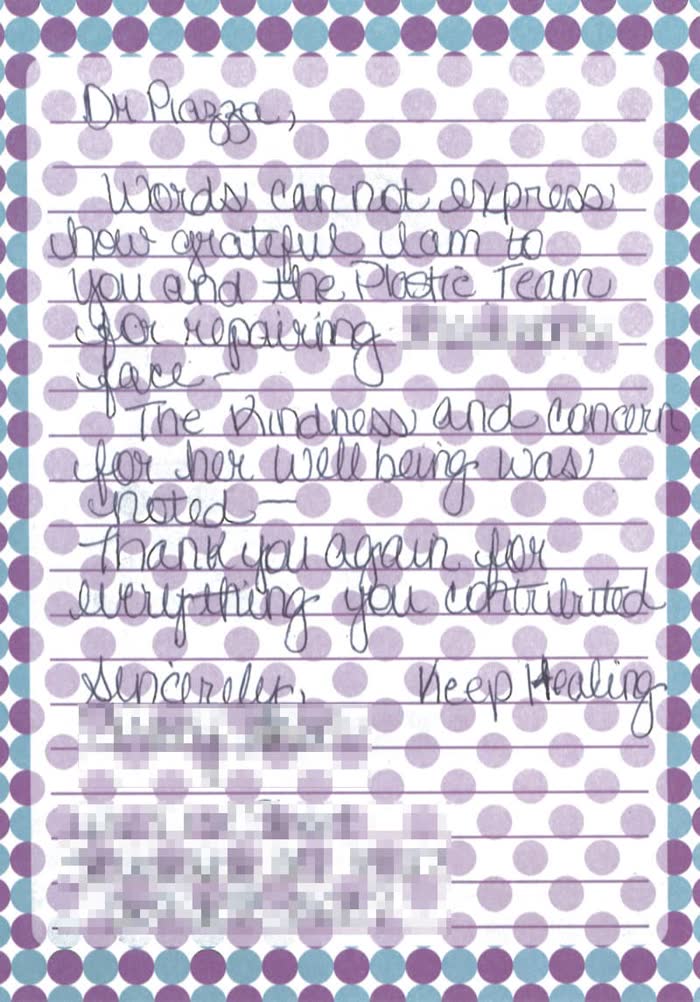 Dr Piazza,
Words cannot express
how grateful I am to
you and the Plastic Team
for repairing
face -
The Kindness and concern
for her well being was
noted —
Thank you again for
everything you contributed
Sincerely, Keep Healing